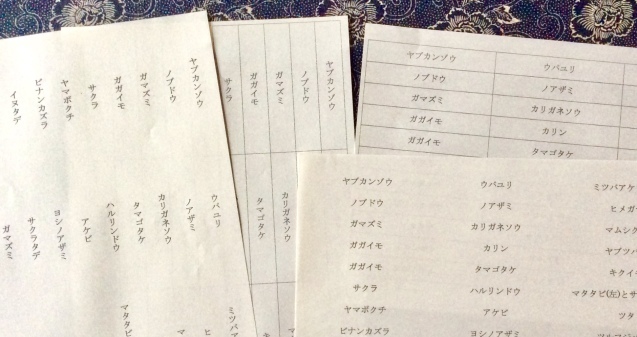 ヤブカンゾウ
ノブドウ
ガマズミ
ガガイモ
サクラ
ヤマボクチ
ビナンカズラ
イヌタデ
ウバユリ
ノアザミ
カリガネソウ
タマゴタケ
ハルリンドウ
アケビ
ヨシノアザミ
サクラタデ
ガマズミ
ミツバア
ヒ
マ
マタタビ
ヤブカンゾウ
ノブドウ
ガマズミ
ガガイモ
サクラ
カリガネソウ
タマゴタケ
ヤブカンゾウ ウバユリ
ノブドウ ノアザミ
ガマズミ カリガネソウ
ガガイモ カリン
ガガイモ タマゴタケ
ヤブカンゾウ ウバユリ ミツバアケ
ノブドウ ノアザミ ヒメガ
ガマズミ カリガネソウ マムシク
ガガイモ カリン ヤブツバ
ガガイモ タマゴタケ キクイ
サクラ ハルリンドウ マタタビ(左)とサ
ヤマボクチ アケビ ツタ
ビナンカズラ ヨシノアザミ